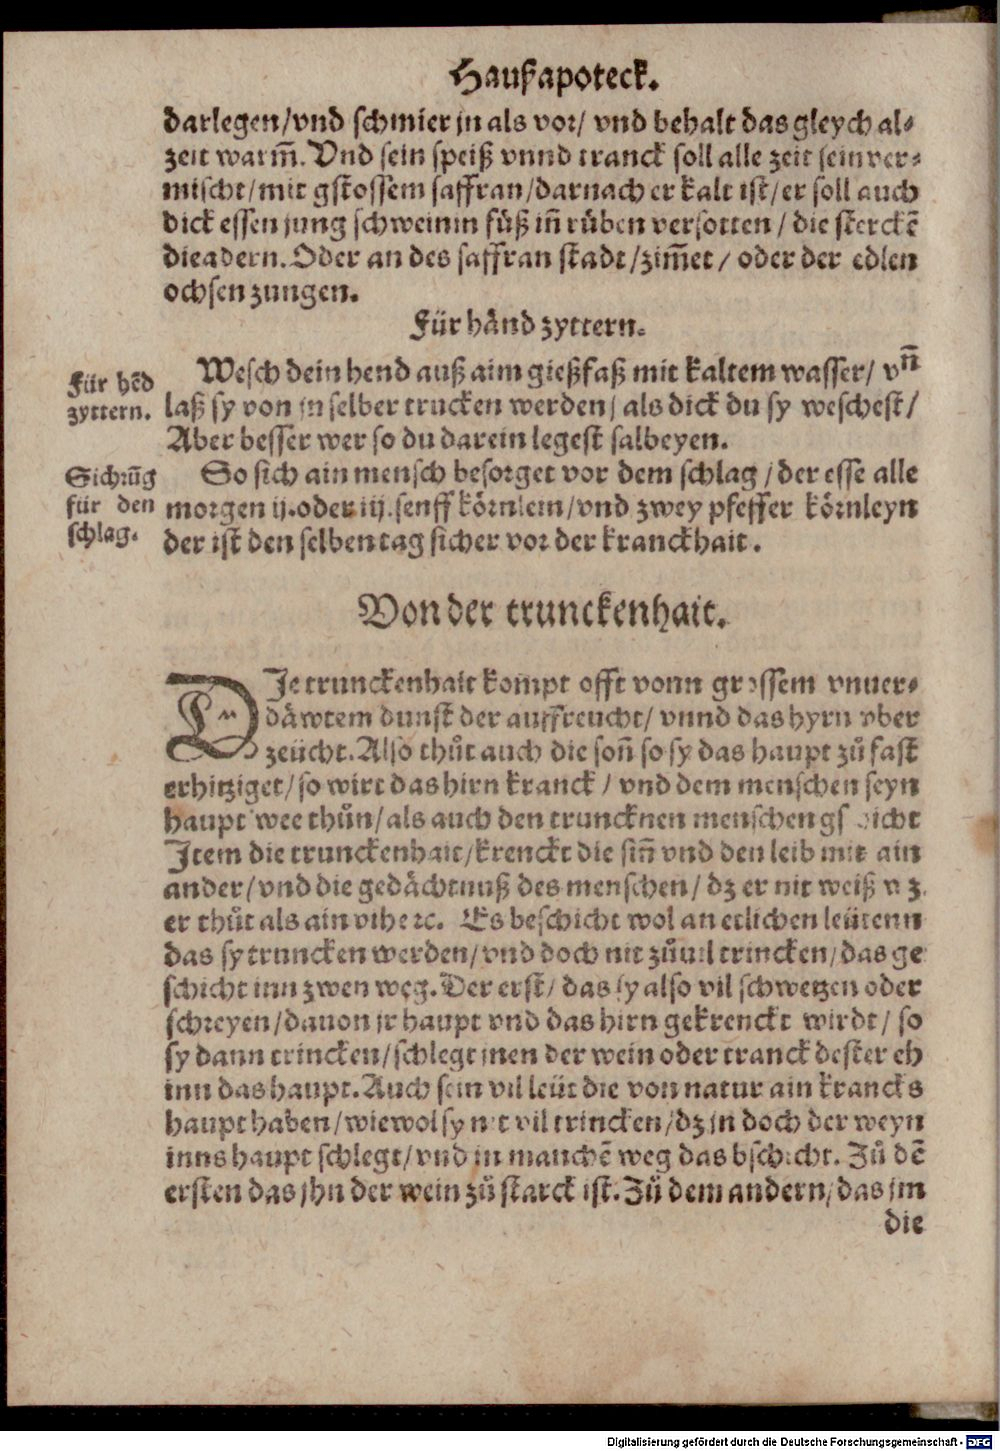 Haußapoteck.
darlegen/vnd schmier jn als vor/ vnd behalt das gleych al⸗
zeit warm̃. Vnd sein speiß vnnd tranck soll alle zeit sein ver⸗
mischt/mit gstossem saffran/darnach er kalt ist/er soll auch
dick essen jung schweinin füß iñ rüben versotten / die sterckẽ
die adern. Oder an des saffran stadt/zim̃et / oder der edlen
ochsen zungen.
Für händ zyttern.
Für hẽd
zyttern.
Wesch dein hend auß aim gießfaß mit kaltem wasser/ vñ
laß sy von jn selber trucken werden/ als dick du sy weschest/
Aber besser wer so du darein legest salbeyen.
Sichrũg
für den
schlag.
So sich ain mensch besorget vor dem schlag / der esse alle
morgen ij. oder iij. senff körnlein/vnd zwey pfeffer körnleyn
der ist den selben tag sicher vor der kranckhait.
Von der trunckenhait.
DJe trunckenhait kompt offt vonn grossem vnuer⸗
däwtem dunst der auffreucht/ vnnd das hyrn vber
zeücht. Also thůt auch die soñ so sy das haupt zů fast
erhitziget/so wirt das hirn kranck / vnd dem menschen seyn
haupt wee thůn/als auch den truncknen menschen gschicht
Jtem die trunckenhait/krenckt die siñ vnd den leib mit ain
ander/vnd die gedächtnuß des menschen/ dz er nit weiß wz
er thůt als ain vihe ꝛc. Es beschicht wol an etlichen leütenn
das sy truncken werden/vnd doch nit zůuil trincken/das ge
schicht inn zwen weg. Der erst/ das sy also vil schwetzen oder
schreyen/dauon jr haupt vnd das hirn gekrenckt wirdt/ so
sy dann trincken/schlegt jnen der wein oder tranck dester eh
inn das haupt. Auch sein vil leüt die von natur ain krancks
haupt haben/wiewol sy nit vil trincken/dz jn doch der weyn
inns haupt schlegt/vnd in manchẽ weg das bschicht. Zů dẽ
ersten das jhn der wein zů starck ist. Zů dem andern/das jm
die
Digitalisierung gefördert durch die Deutsche Forschungsgemeinschaft - DFG